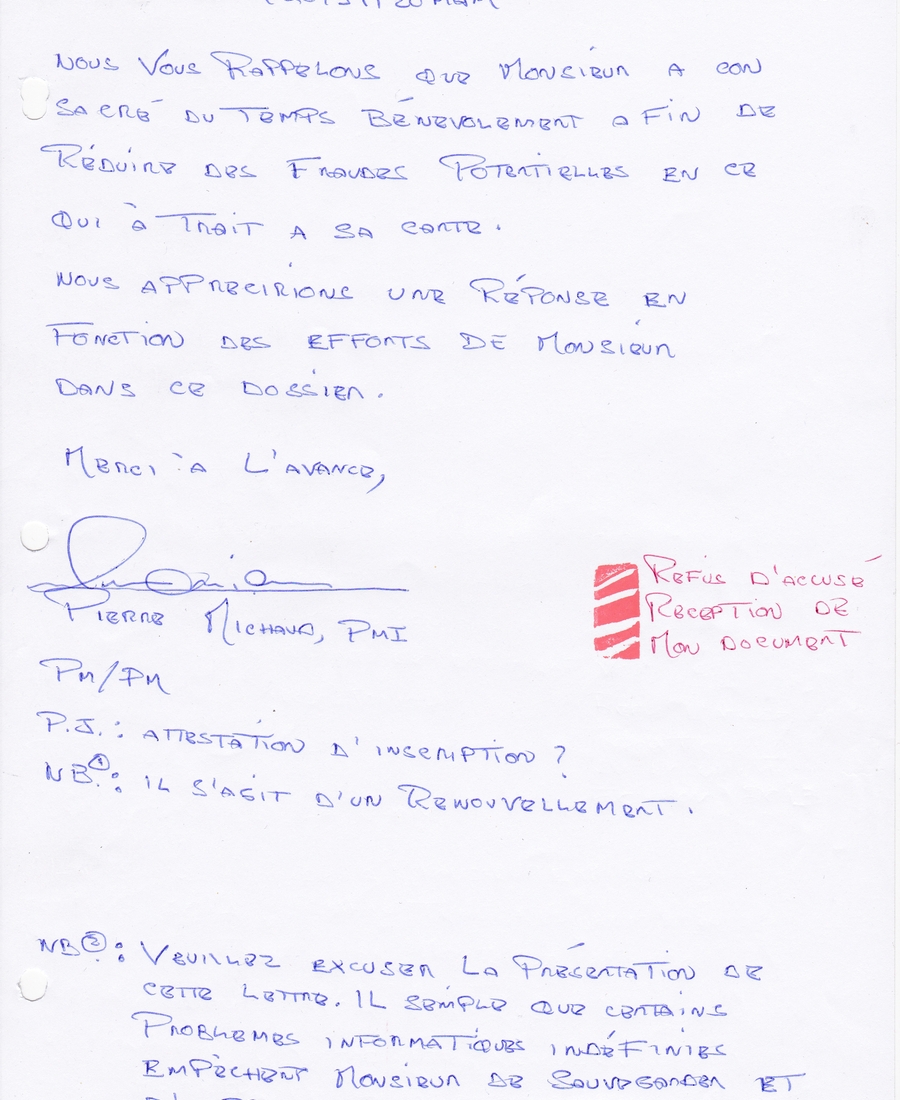 NOUS VOUS RAPPELONS QUE MONSIEUR A CON
SACRÉ DU TEMPS BÉNEVOLEMENT AFIN DE
RÉDUIRE DES FRAUDES POTENTIELLES EN CE
QUI À TRAIT A SA CARTE.
NOUS APPRECIRIONS UNE RÉPONSE EN
FONCTION DES EFFORTS DE MONSIEUR
DANS CE DOSSIER.
MERCI À L'AVANCE,
PIERRE MICHAUD, PMI
PM/PM
REFUS D'ACCUSÉ
RECEPTION DE
MON DOCUMENT
P.J.: ATTESTATION D'INSCRIPTION ?
NB①: IL S'AGIT D'UN RENOUVELLEMENT.
NB②: VEUILLEZ EXCUSER LA PRÉSENTATION DE
CETTE LETTRE. IL SEMPLE QUE CERTAINS
PROBLEMES INFORMATIQUES INDÉFINIES
EMPÈCHENT MONSIEUR DE SAUVEGARDER ET